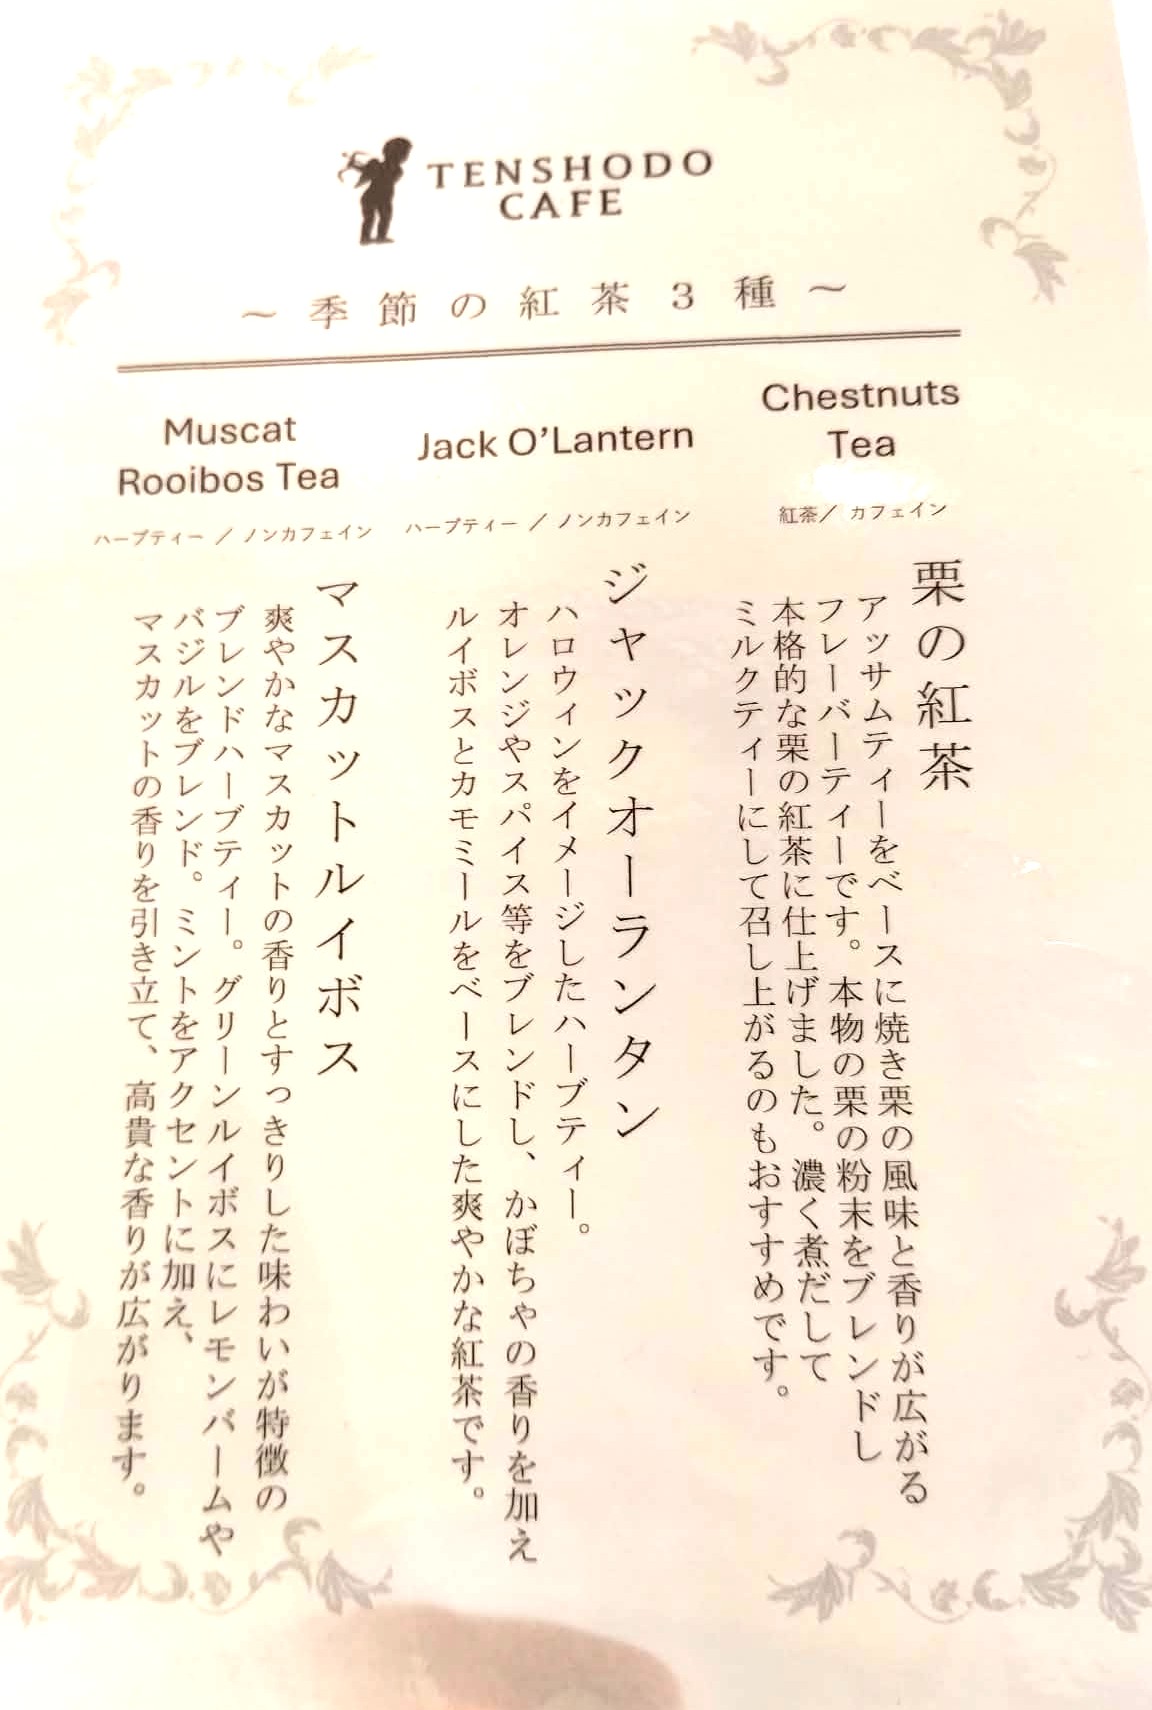 TENSHODO
CAFE
～季節の紅茶3種～
Chestnuts
Tea
紅茶／カフェイン
栗の紅茶
アッサムティーをベースに焼き栗の風味と香りが広がる
フレーバーティーです。本物の栗の粉末をブレンドし
本格的な栗の紅茶に仕上げました。濃く煮だして
ミルクティーにして召し上がるのもおすすめです。
Jack O'Lantern
ハーブティー／ノンカフェイン
ジャックオーランタン
ハロウィンをイメージしたハーブティー。
オレンジやスパイス等をブレンドし、かぼちゃの香りを加え
ルイボスとカモミールをベースにした爽やかな紅茶です。
Muscat
Rooibos Tea
ハーブティー／ノンカフェイン
マスカットルイボス
爽やかなマスカットの香りとすっきりした味わいが特徴の
ブレンドハーブティー。グリーンルイボスにレモンバームや
バジルをブレンド。ミントをアクセントに加え、
マスカットの香りを引き立て、高貴な香りが広がります。